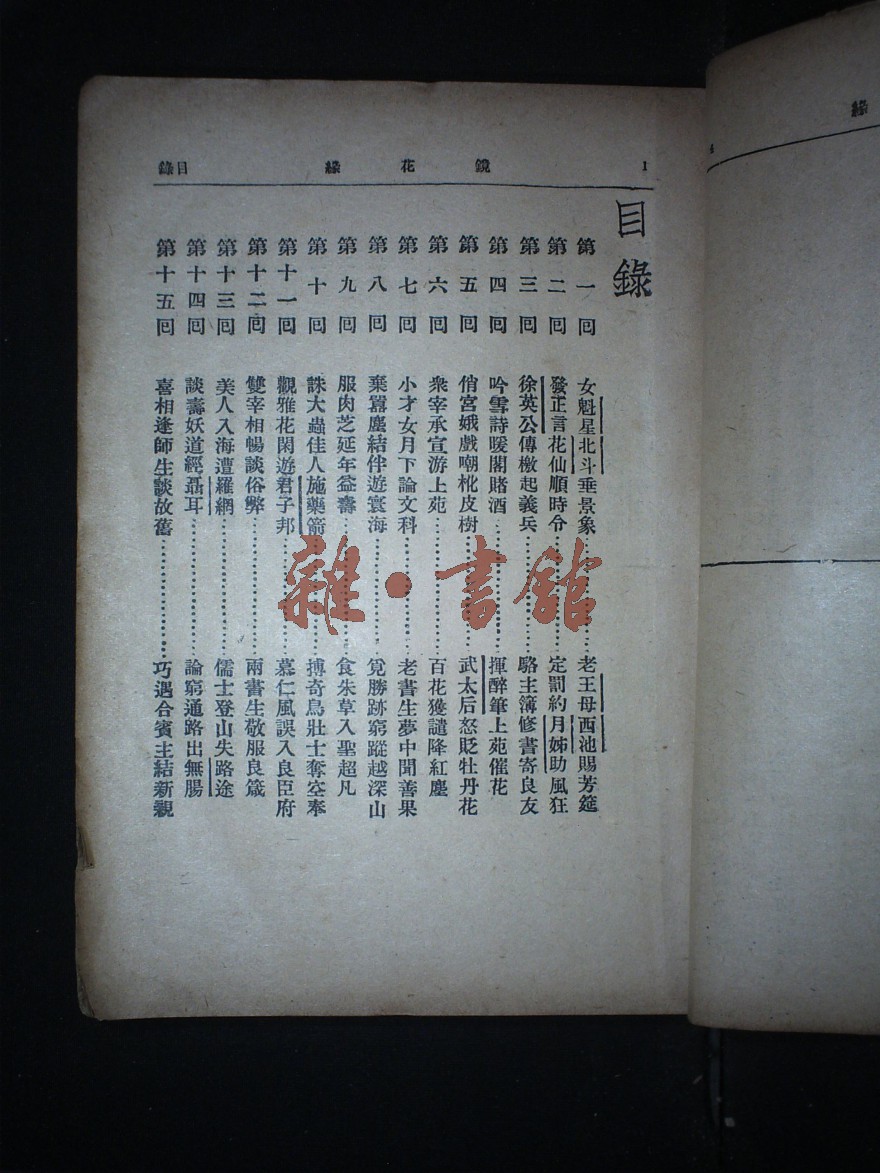 1 鏡花緣 目錄
目錄
第一回 女魁星北斗垂景象……老王母西池賜芳筵
第二回 發正言花仙順時令……定罰約月姊助風狂
第三回 徐英公傳檄起義兵……駱主簿修書寄良友
第四回 吟雪詩暖閣賭酒……揮醉筆上苑催花
第五回 俏宮娥戲嘲枇皮樹……武太后怒貶牡丹花
第六回 衆宰承宣游上苑……百花獲譴降紅塵
第七回 小才女月下論文科……老書生夢中聞善果
第八回 棄囂塵結伴遊寰海……覓勝跡窮蹤越深山
第九回 服肉芝延年益壽……食朱草入聖超凡
第十回 誅大蟲佳人施藥箭……搏奇鳥壯士奪空拳
第十一回 觀雅花閑遊君子邦……慕仁風誤入良臣府
第十二回 雙宰相暢談俗弊……兩書生敬服良箴
第十三回 美人入海遭羅網……儒士登山失路途
第十四回 談壽妖道經聶耳……論窮通路出無腸
第十五回 喜相逢師生談故舊……巧遇合賓主結新親
雜·書館
緣